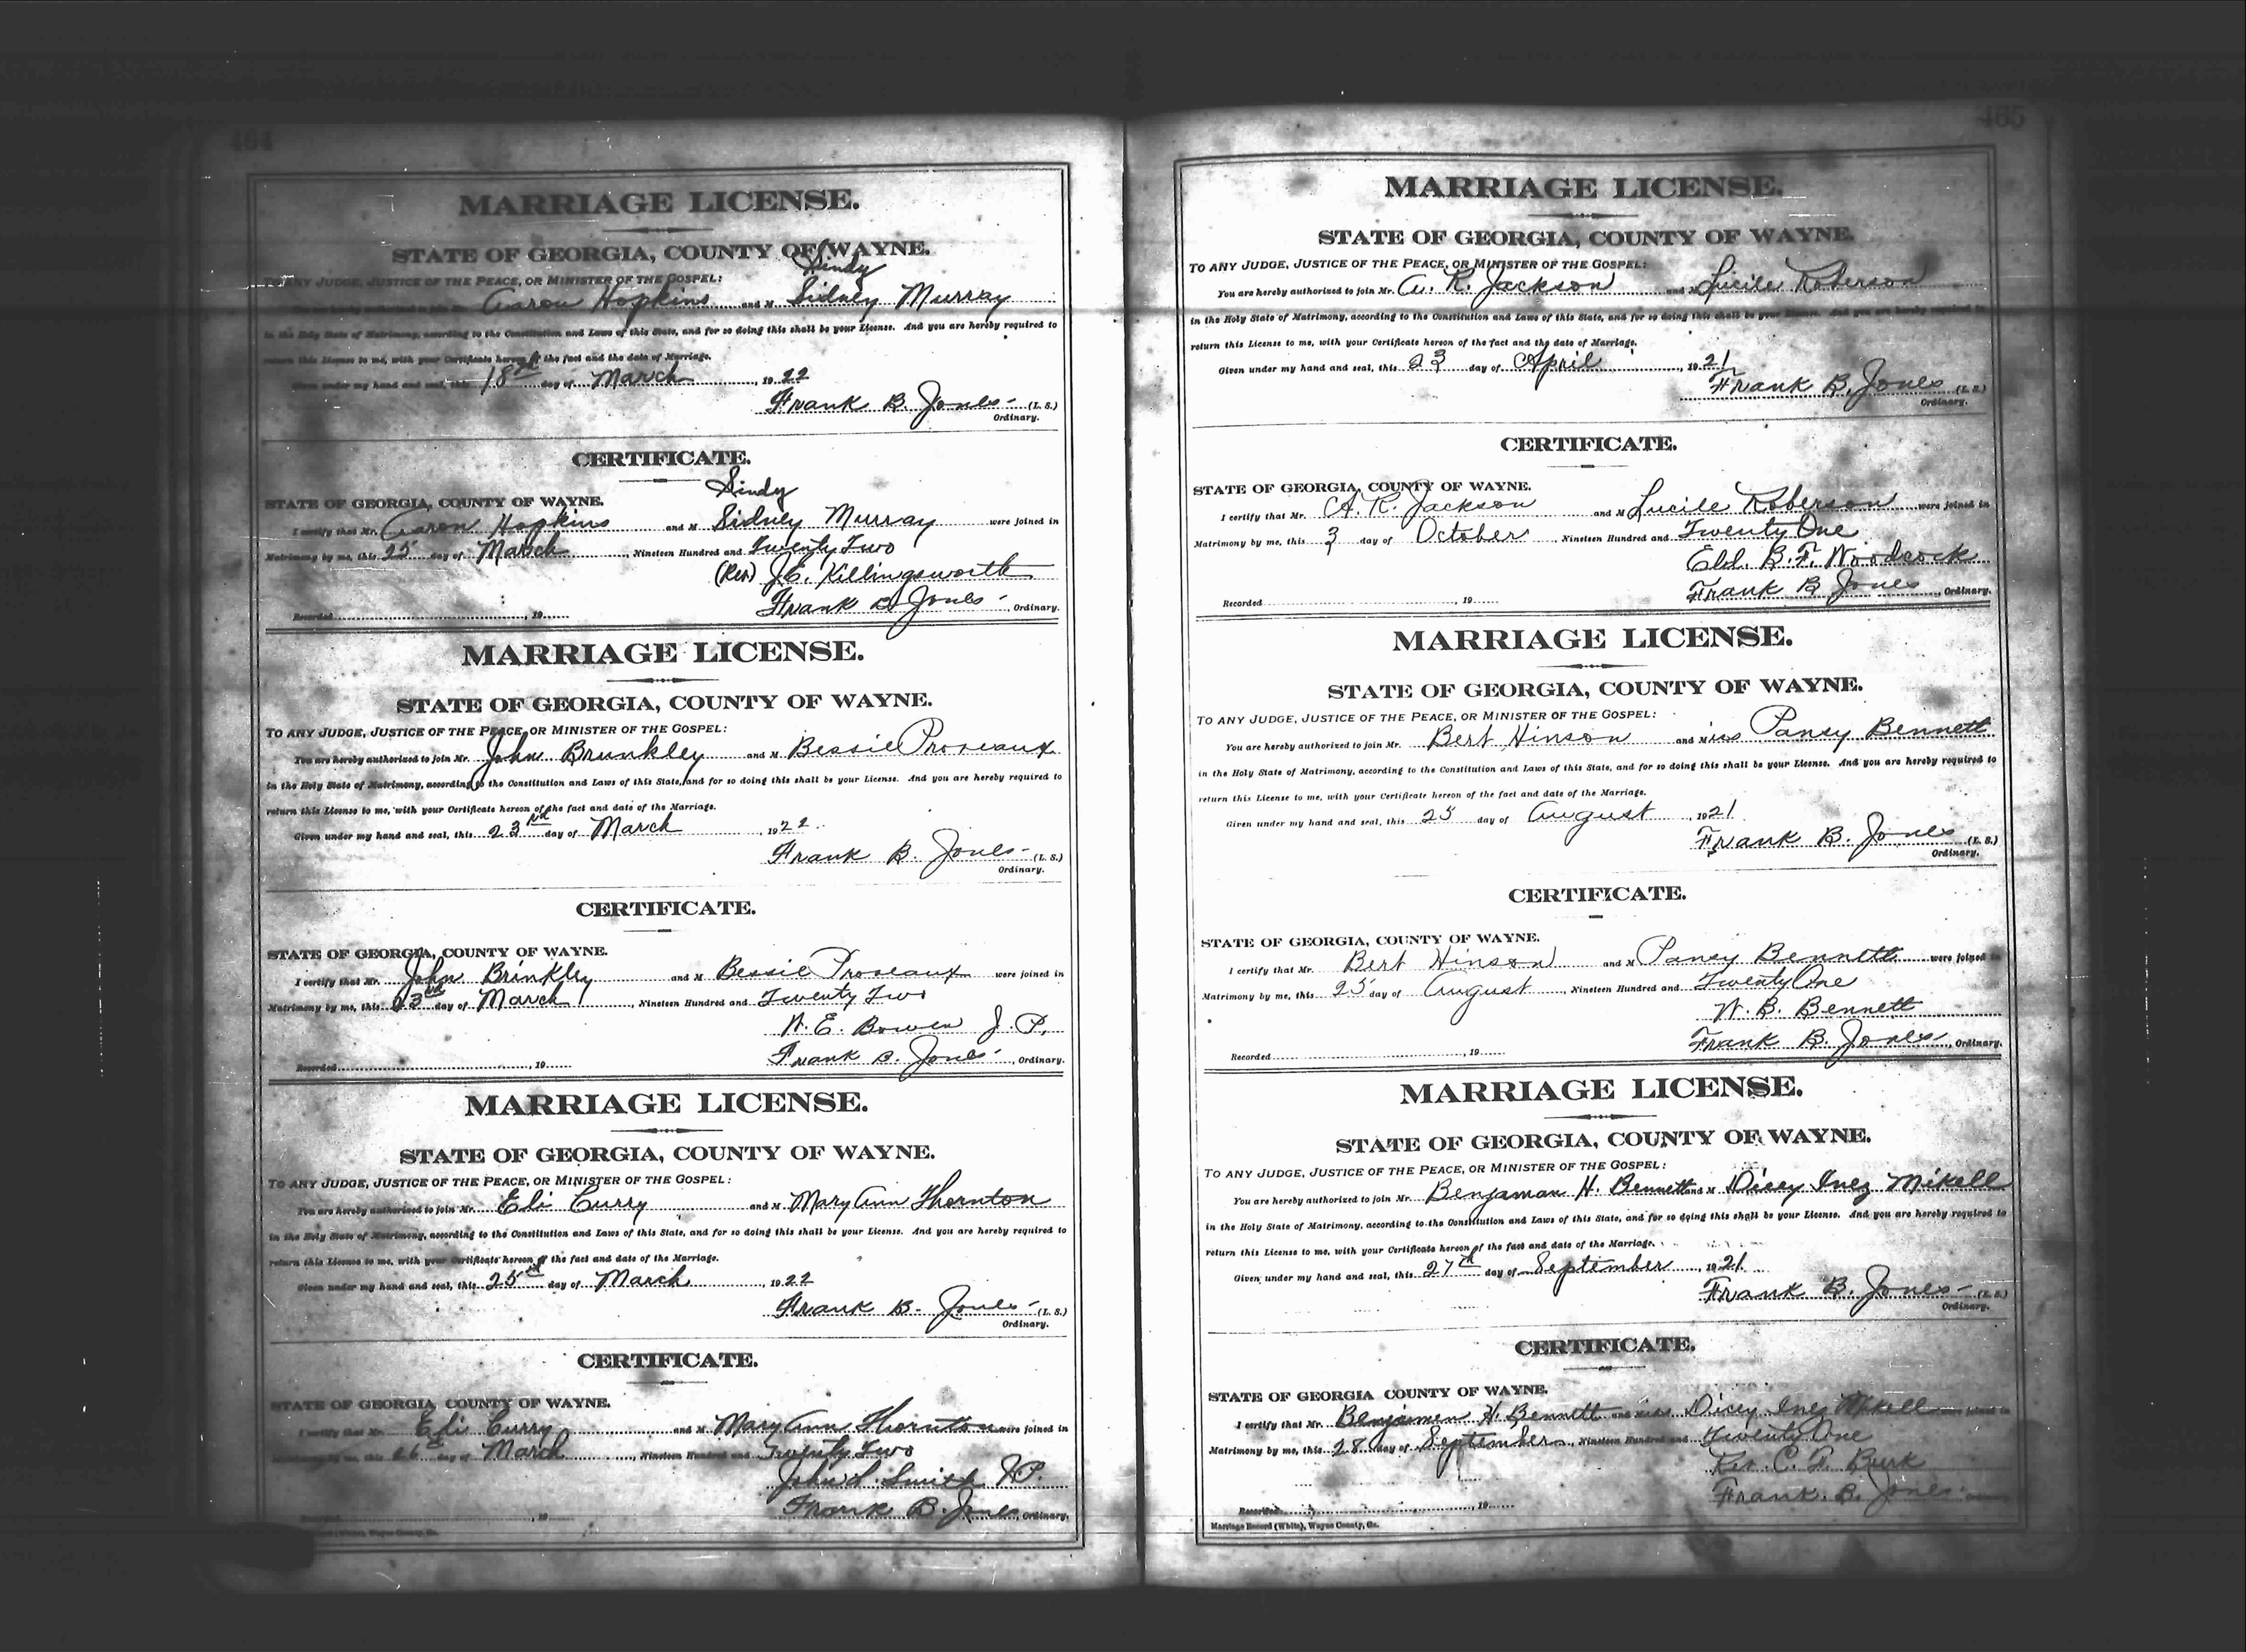 464
MARRIAGE LICENSE.
STATE OF GEORGIA, COUNTY OF WAYNE.
TO ANY JUDGE, JUSTICE OF THE PEACE, OR MINISTER OF THE GOSPEL:
Sindy
Aaron Hopkins and M Sidney Murray
in the Holy State of Matrimony, according to the Constitution and Laws of this State, and for so doing this shall be your License. And you are hereby required to
return this License to me, with your Certificate hereon of the fact and the date of Marriage.
Given under my hand and seal, this 18th day of March, 1922
Frank B. Jones (L. S.)
Ordinary.
CERTIFICATE.
Sindy
STATE OF GEORGIA, COUNTY OF WAYNE.
I certify that Mr. Aaron Hopkins and M Sidney Murray were joined in
Matrimony by me, this 25 day of March, Nineteen Hundred and Twenty Two
(Rev) J.E. Killingsworth
Frank B Jones, Ordinary.
Recorded, 19
MARRIAGE LICENSE.
STATE OF GEORGIA, COUNTY OF WAYNE.
TO ANY JUDGE, JUSTICE OF THE PEACE, OR MINISTER OF THE GOSPEL:
You are hereby authorized to join Mr. John Brunkley and M Bessie Proveaux
in the Holy State of Matrimony, according to the Constitution and Laws of this State, and for so doing this shall be your License. And you are hereby required to
return this License to me, with your Certificate hereon of the fact and date of the Marriage.
Given under my hand and seal, this 23rd day of March, 1922
Frank B. Jones (L. S.)
Ordinary.
CERTIFICATE.
STATE OF GEORGIA, COUNTY OF WAYNE.
I certify that Mr. John Brinkley and M Bessie Proveaux were joined in
Matrimony by me, this 23rd day of March, Nineteen Hundred and Twenty Two
W. E. Bowen J. P.
Frank B. Jones, Ordinary.
Recorded, 19
MARRIAGE LICENSE.
STATE OF GEORGIA, COUNTY OF WAYNE.
TO ANY JUDGE, JUSTICE OF THE PEACE, OR MINISTER OF THE GOSPEL:
You are hereby authorized to join Mr. Eli Curry and M Mary Ann Thornton
in the Holy State of Matrimony, according to the Constitution and Laws of this State, and for so doing this shall be your License. And you are hereby required to
return this License to me, with your Certificate hereon of the fact and date of the Marriage.
Given under my hand and seal, this 25 day of March, 1922
Frank B. Jones (L. S.)
Ordinary.
CERTIFICATE.
STATE OF GEORGIA, COUNTY OF WAYNE.
I certify that Mr. Eli Curry and M Mary Ann Thornton were joined in
Matrimony by me, this 26 day of March, Nineteen Hundred and Twenty Two
John S. Smith J.P.
Frank B. Jones, Ordinary.
Recorded, 19
Wayne County, Ga.
465
MARRIAGE LICENSE.
STATE OF GEORGIA, COUNTY OF WAYNE.
TO ANY JUDGE, JUSTICE OF THE PEACE, OR MINISTER OF THE GOSPEL:
You are hereby authorized to join Mr. A. R. Jackson and M Lucile Roberson
in the Holy State of Matrimony, according to the Constitution and Laws of this State, and for so doing this shall be your License. And you are hereby required to
return this License to me, with your Certificate hereon of the fact and the date of Marriage.
Given under my hand and seal, this 23 day of April, 1921
Frank B. Jones (L. S.)
Ordinary.
CERTIFICATE.
STATE OF GEORGIA, COUNTY OF WAYNE.
I certify that Mr. A. R. Jackson and M Lucile Roberson were joined in
Matrimony by me, this 3 day of October, Nineteen Hundred and Twenty One
Eld. B. F. Woodcock
Frank B Jones, Ordinary.
Recorded, 19
MARRIAGE LICENSE.
STATE OF GEORGIA, COUNTY OF WAYNE.
TO ANY JUDGE, JUSTICE OF THE PEACE, OR MINISTER OF THE GOSPEL:
You are hereby authorized to join Mr. Bert Hinson and Miss Pansy Bennett
in the Holy State of Matrimony, according to the Constitution and Laws of this State, and for so doing this shall be your License. And you are hereby required to
return this License to me, with your Certificate hereon of the fact and date of the Marriage.
Given under my hand and seal, this 25 day of August, 1921
Frank B. Jones (L. S.)
Ordinary.
CERTIFICATE.
STATE OF GEORGIA, COUNTY OF WAYNE.
I certify that Mr. Bert Hinson and M Pansy Bennett were joined in
Matrimony by me, this 25 day of August, Nineteen Hundred and Twenty One
W. B. Bennett
Frank B. Jones, Ordinary.
Recorded, 19
MARRIAGE LICENSE.
STATE OF GEORGIA, COUNTY OF WAYNE.
TO ANY JUDGE, JUSTICE OF THE PEACE, OR MINISTER OF THE GOSPEL:
You are hereby authorized to join Mr. Benjaman H. Bennett and M Dicey Inez Mikell
in the Holy State of Matrimony, according to the Constitution and Laws of this State, and for so doing this shall be your License. And you are hereby required to
return this License to me, with your Certificate hereon of the fact and date of the Marriage.
Given under my hand and seal, this 27th day of September, 1921.
Frank B. Jones (L. S.)
Ordinary.
CERTIFICATE.
STATE OF GEORGIA COUNTY OF WAYNE.
I certify that Mr. Benjamen H. Bennett and Miss Dicey Inez Mikell were joined in
Matrimony by me, this 28 day of September, Nineteen Hundred and Twenty One
Rev. C. T. Burk
Frank. B. Jones. Ordinary
Recorded, 19
Marriage Record (White), Wayne County, Ga.